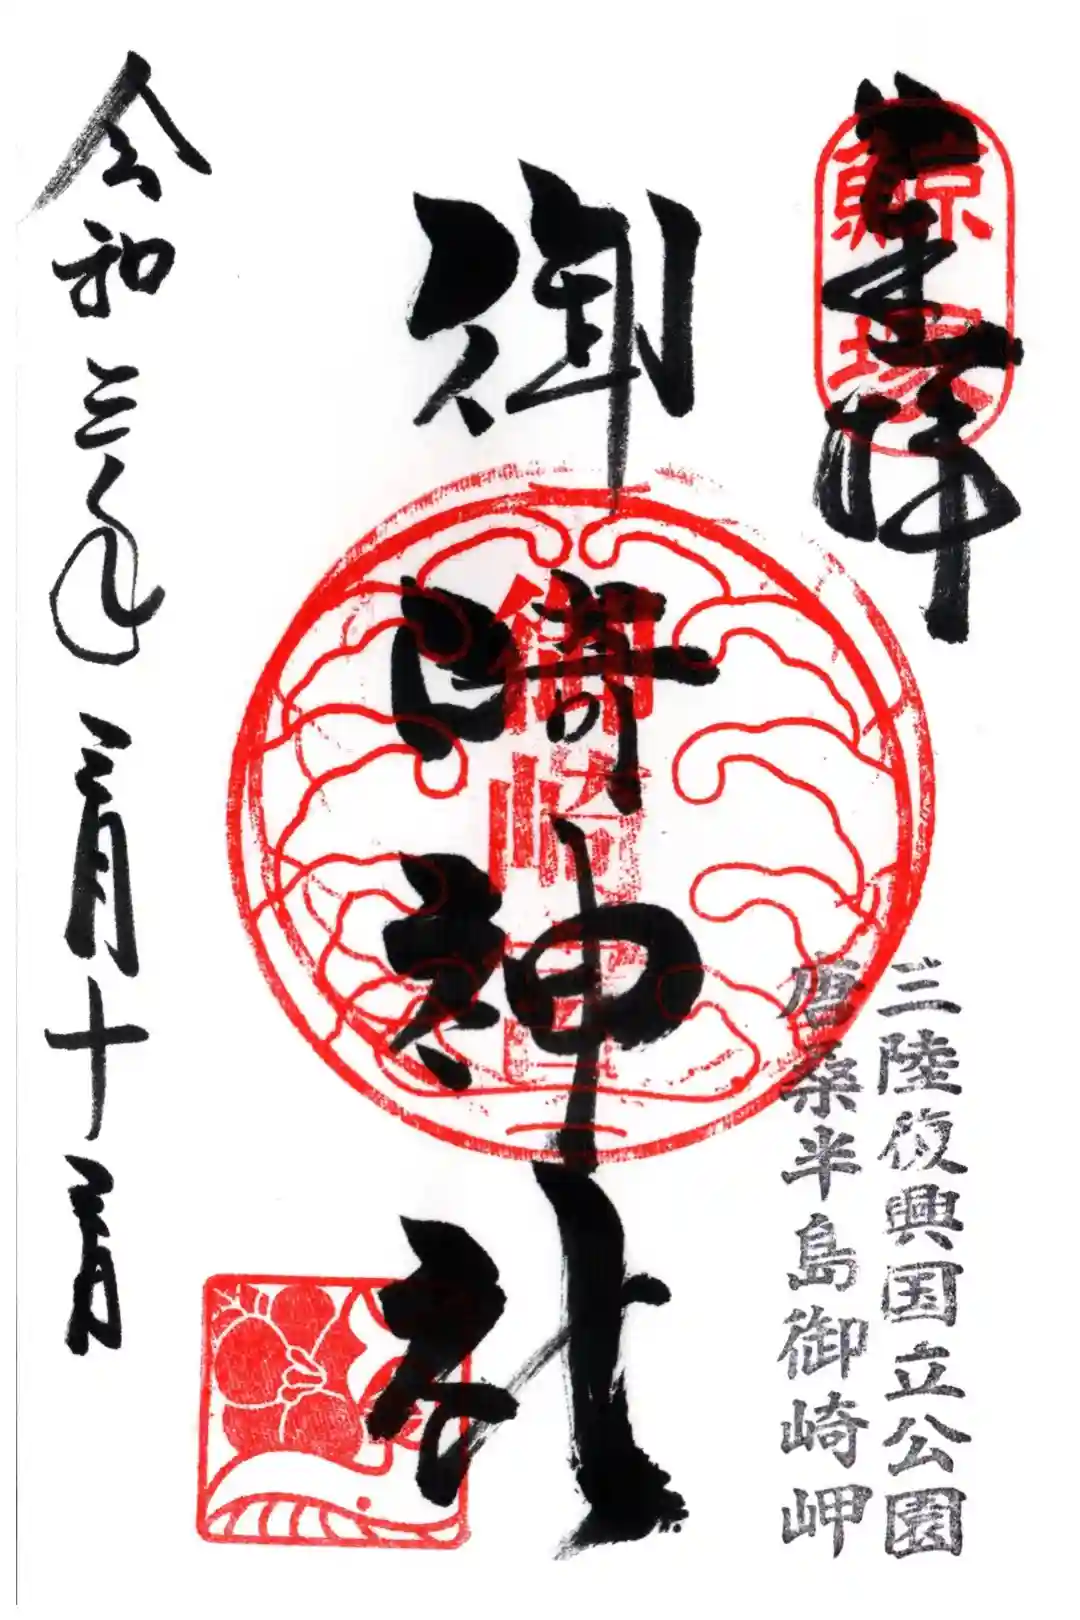 奉拝
鯨塚
三陸復興国立公園
唐桑半島御崎岬
御崎神社
御崎
令和三年三月十三日